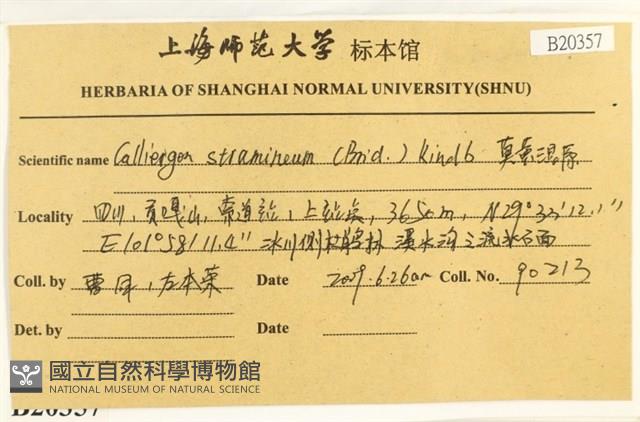 上海师范大学 标本馆
B20357
HERBARIA OF SHANGHAI NORMAL UNIVERSITY(SHNU)
Scientific name Calliergon stramineum (Brid.) Kindb
Locality 四川，贡嘎山，索道站，上站点，3650m，N29°33'12.1"
E101°58'11.4" 冰川侧 林 溪水沟之流水石面
Coll. by 曹同，左本荣 Date 2009.6.26 Coll. No. 90213
Det. by Date
國立自然科學博物館
NATIONAL MUSEUM OF NATURAL SCIENCE
B20357